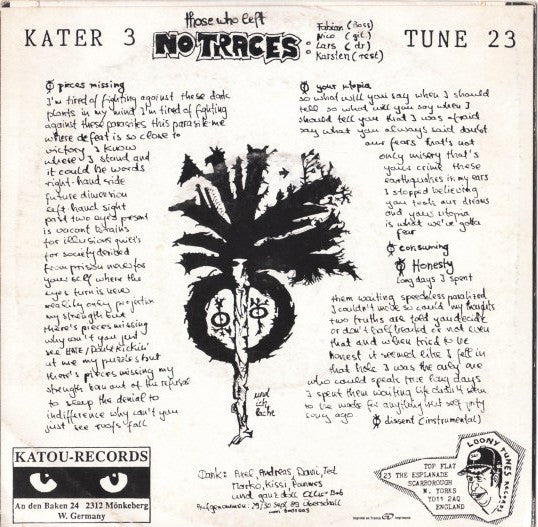 those who left
KATER 3
NO TRACES
TUNE 23
Fabian (Bass)
Nico (git.)
Lars (dr)
Karsten (rest)
pieces missing
I'm tired of fighting against these dark
plants in my mind I'm tired of fighting
against these parasites this parasite me
where defeat is so close to
victory I know
where I stand and
it could be words
right-hand side
future dimension
left hand sight
past two eyes present
is vacant terrains
for illusions
for society derided
from prison never for
yourself where the
eyes turn is never
reality only projection
my strength but
there's pieces missing
why can't you just
see HATE/
at me my puzzles but
there's pieces missing my
strength ban out of the refuse
to sleep the denial to
indifference why can't you
just see roofs fall
your utopia
so what will you say when I should
tell so what will you say when I
should tell you that I was afraid
say what you always said doubt
our fears that's not
only misery that's
your crime these
earthquakes in my ears
I stopped believing
you took our dreams
and your utopia
is what we've gotta
fear
consuming
Honesty
long days I spent
them waiting speechless paralized
I couldn't move so could my thoughts
two truths are told you decide
or don't half hearted or not even
that and when tried to be
honest it seemed like I fell in
that hole I was the only one
who could speak true long days
I spent them waiting life didn't seem
to be made for anything but self pity
song ago
dissent (instrumental)
und ich
lache
Dank: Axel, Andreas, Dani, Ted
Marko, Kissi, Hannes
und ganz doll
Aufgenommen: 29/30 Sept 89 Überschall
KATOU-RECORDS
An den Baken 24 2312 Mönkeberg
W. Germany
LOONY TUNES RECORDS
TOP FLAT
23 THE ESPLANADE
SCARBOROUGH
N. YORKS
YO11 2AQ
ENGLAND
Imprimé en France